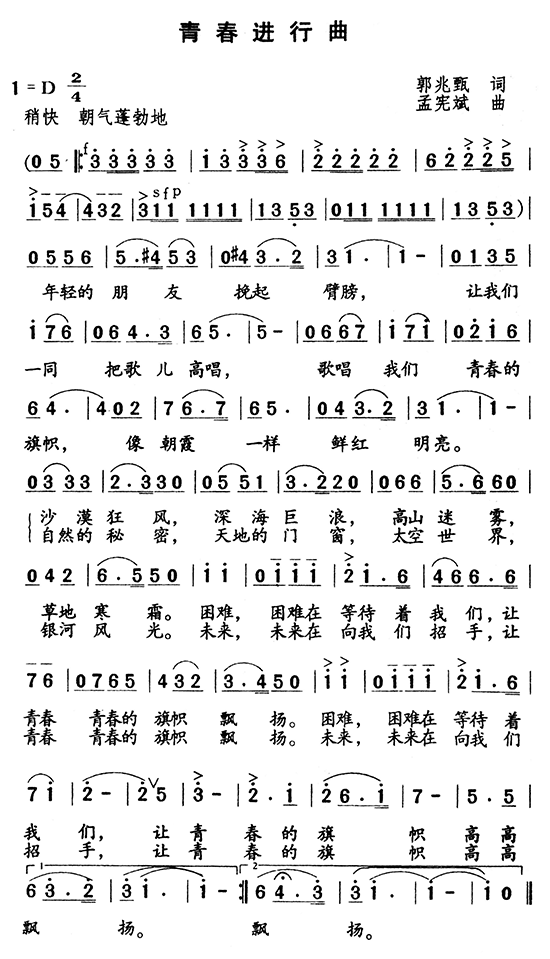 青春进行曲
1=D 2/4 郭兆甄 词
稍快 朝气蓬勃地 孟宪斌 曲
(0 5 ‖: f 3 3 3 3 3 | 1 3 3 3 6 | 2 2 2 2 2 | 6 2 2 2 5 |
1 5 4 | 4 3 2 | 3 1 1 sfp 1 1 1 1 | 1 3 5 3 | 0 1 1 1 1 1 1 | 1 3 5 3) |
0 5 5 6 | 5. #4 5 3 | 0 #4 3. 2 | 3 1. | 1 - | 0 1 3 5 |
年轻的 朋友 挽起 臂膀, 让我们
1 7 6 | 0 6 4. 3 | 6 5. | 5 - | 0 6 6 7 | 1 7 1 | 0 2 1 6 |
一同 把歌儿 高唱, 歌唱 我们 青春的
6 4. | 4 0 2 | 7 6. 7 | 6 5. | 0 4 3. 2 | 3 1. | 1 - |
旗帜, 像 朝霞 一样 鲜红 明亮。
0 3 3 3 | 2. 3 3 0 | 0 5 5 1 | 3. 2 2 0 | 0 6 6 | 5. 6 6 0 |
沙漠狂风, 深海巨浪, 高山迷雾,
自然的秘密, 天地的门窗, 太空世界,
0 4 2 | 6. 5 5 0 | 1 1 | 0 1 1 1 | 2 1. 6 | 4 6 6. 6 |
草地寒霜。困难, 困难在 等待着我们,让
银河风光。未来, 未来在 向我们招手,让
7 6 | 0 7 6 5 | 4 3 2 | 3. 4 5 0 | 1 1 | 0 1 1 1 | 2 1. 6 |
青春 青春的旗帜 飘扬。困难, 困难在 等待着
青春 青春的旗帜 飘扬。未来, 未来在 向我们
7 1 | 2 - | 2 ∨ 5 | 3 - | 2. 1 | 2 6. 1 | 7 - | 5. 5 |
我们, 让青春的旗帜高高
招手, 让青春的旗帜高高
1 6 3. 2 | 2 3 | 3 1. | 1 - :‖ 2 6 4. 3 | 3 1. | 1 - | 1 0 ‖
飘扬。 飘扬。